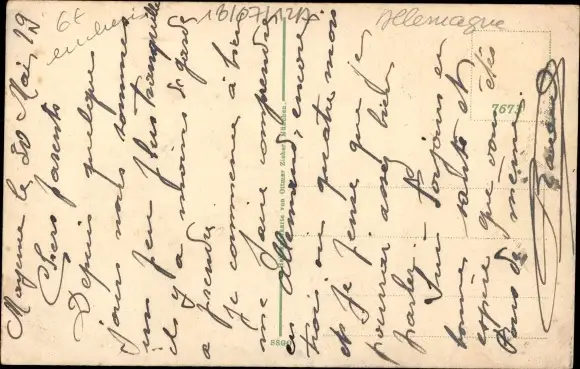 Mayence le 20 Mai 19
Chers parents
Depuis quelques
jours nous sommes
un peu plus tranquille
ils y a moins de garde
a prendre
Je commence à bien
me faire comprendre
en Allemand, encore
trois ou quatre mois
et je pense que je
pourrai assez bien
parler.
Suis toujours en
bonne santé et
espère que vous êtes
tous de même.
Allemagne
18/07/1217
6€
7673
von Ottmar Zieher, München.